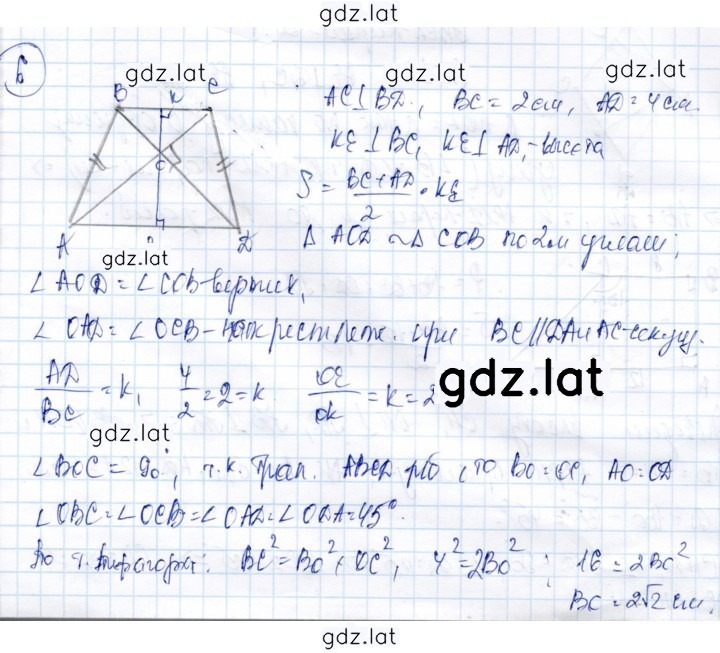 gdz.lat
6
gdz.lat gdz.lat gdz.lat
B K C
AC⊥BD, BC = 2 см, AD = 4 см.
KE⊥BC, KE⊥AD, - высота
S = (BC+AD)/2 · KE
O
A D
gdz.lat
Δ AOD ~ Δ COB по 2м углам;
∠AOD = ∠COB - вертик,
∠OAD = ∠OCB - накрестлеж. при BC||DA и AC - секущ.
AD/BC = k, 4/2 = 2 = k. OE/OK = k = 2
gdz.lat
gdz.lat
∠BOC = 90°, т.к. трап. ABCD р/б, то BO = OC, AO = OD
∠OBC = ∠OCB = ∠OAD = ∠ODA = 45°.
По т. Пифагора: BC² = BO² + OC², 4² = 2BO²; 16 = 2BC²
BC = 2√2 см.
gdz.lat